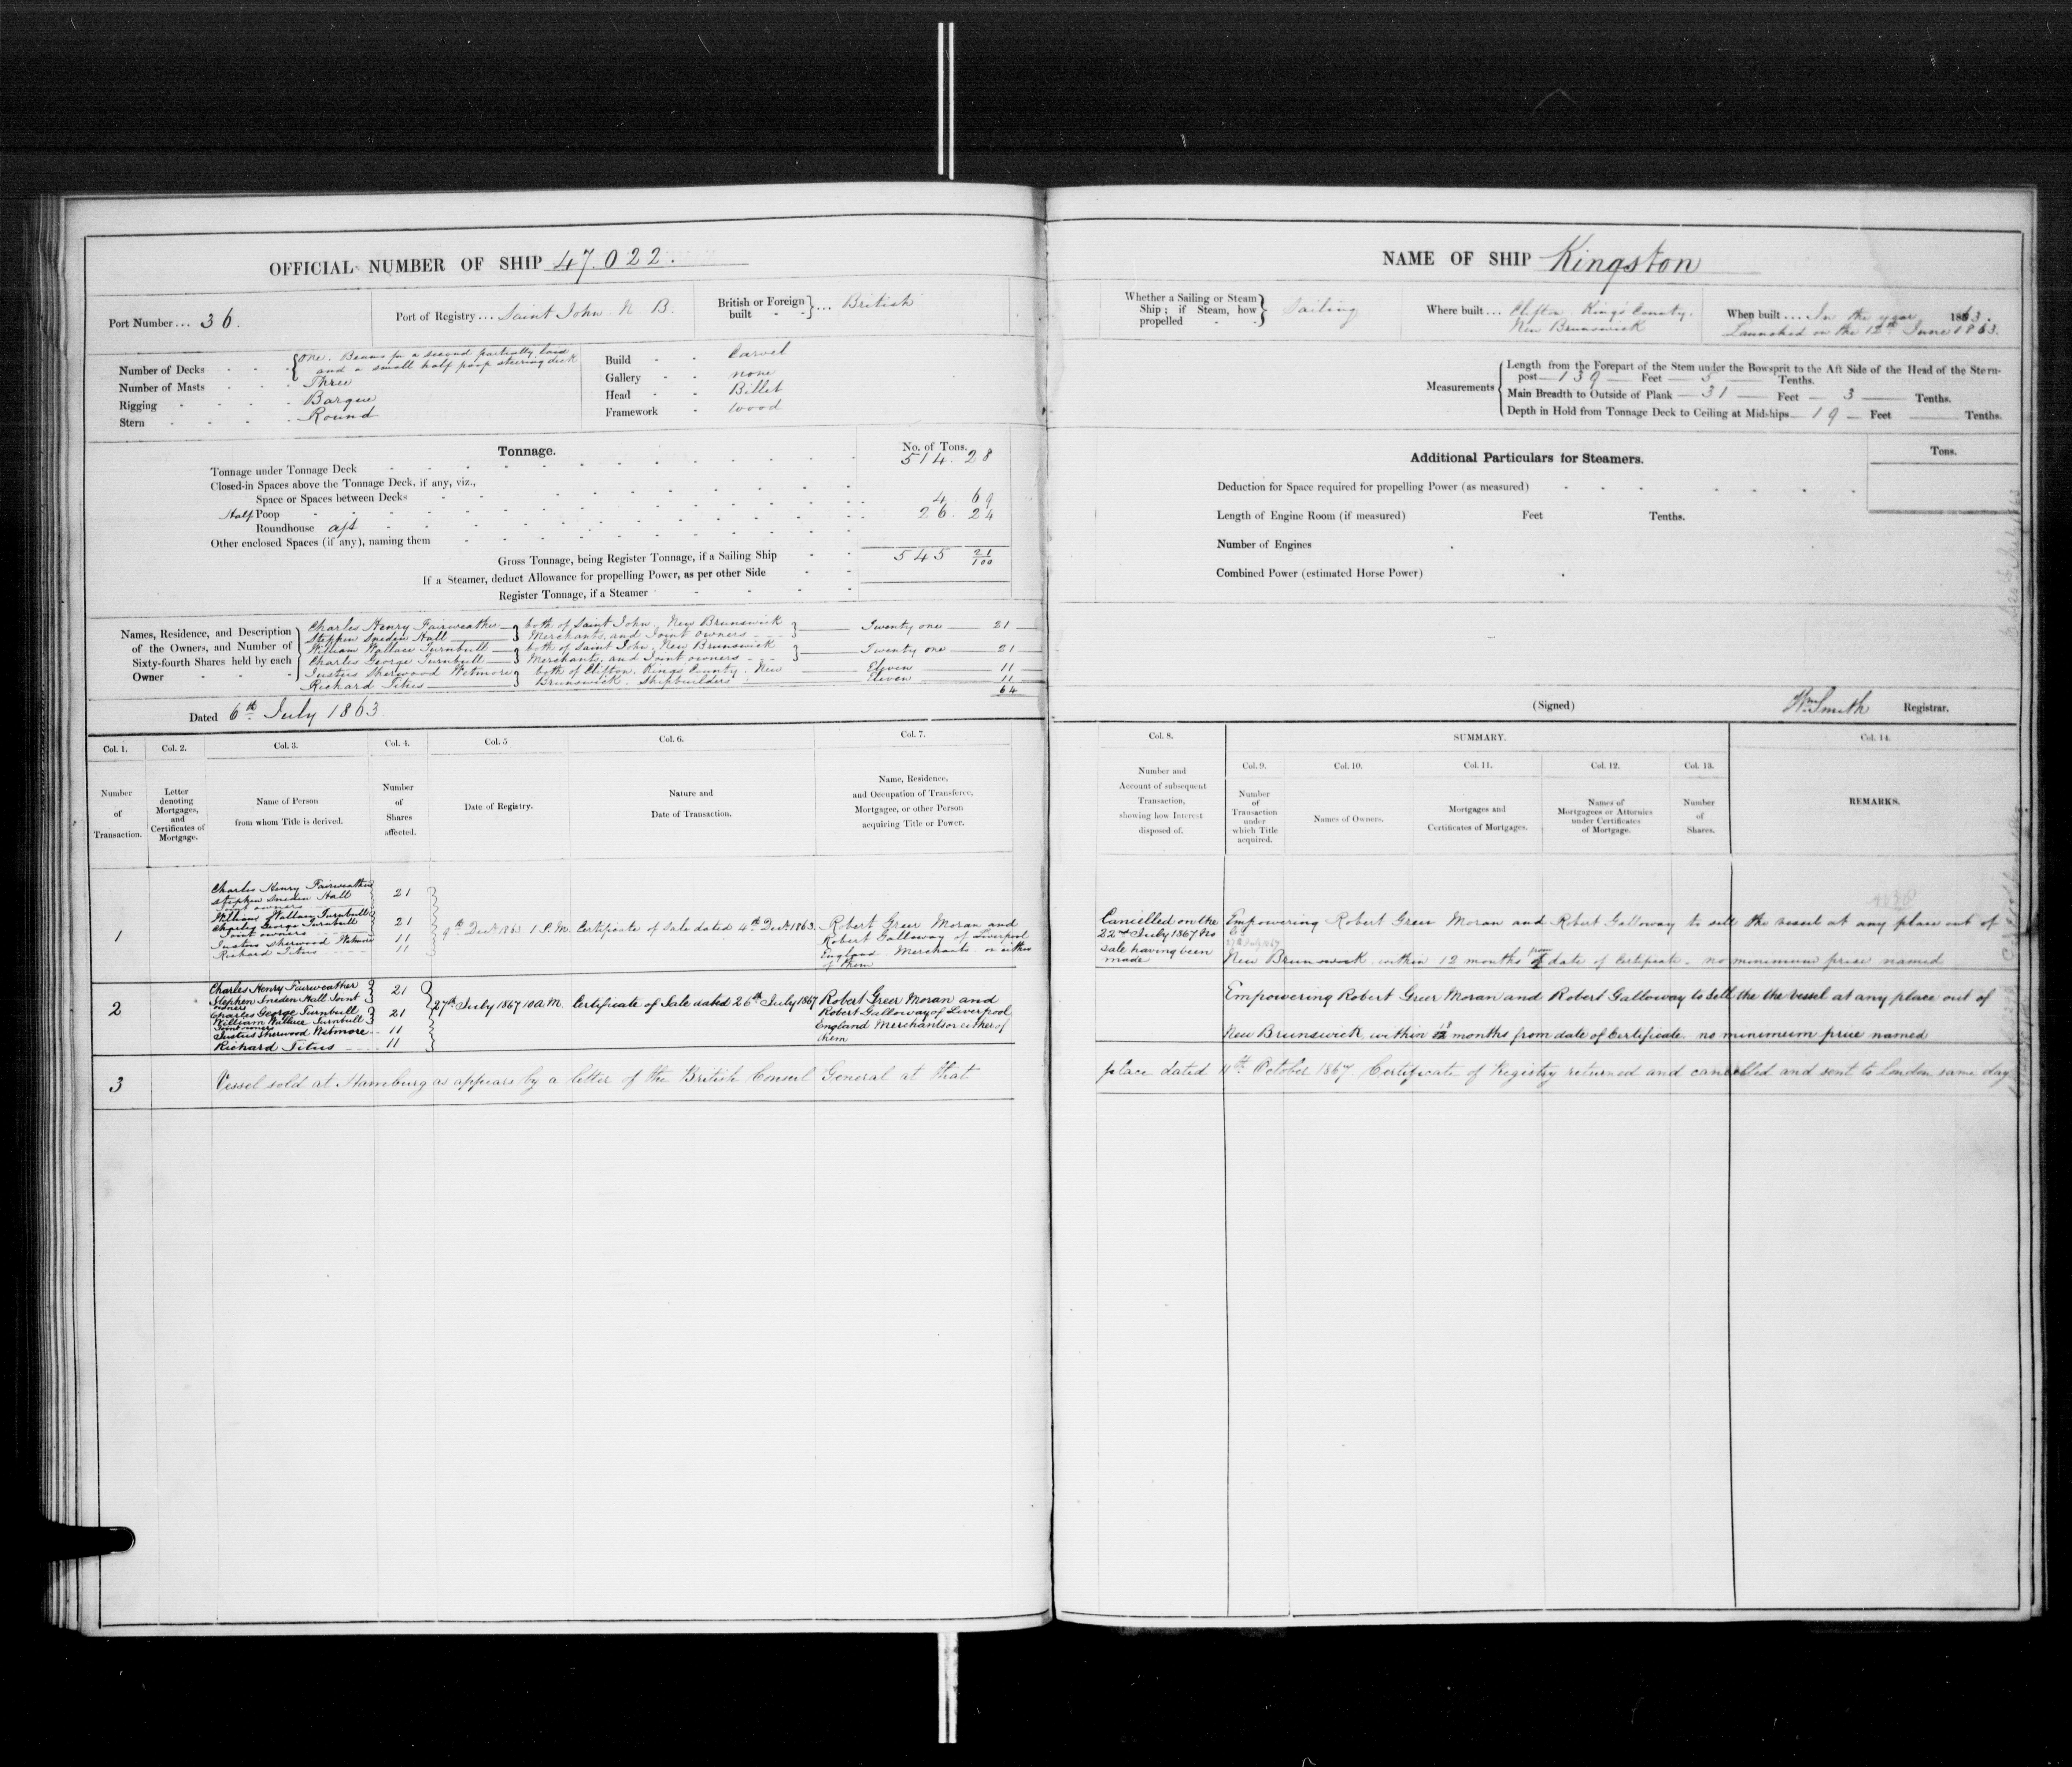 OFFICIAL NUMBER OF SHIP 47.022.
Port Number... 36.
Port of Registry... Saint John. N. B.
British or Foreign built }... British
Number of Decks - - { One. Beams for a second partially laid
and a small half poop steering deck
Number of Masts - - Three
Rigging - - Barque
Stern - - Round
Build - - Carvel
Gallery - - none
Head - - Billet
Framework - wood
Tonnage.
No. of Tons.
Tonnage under Tonnage Deck 514.28
Closed-in Spaces above the Tonnage Deck, if any, viz.,
Space or Spaces between Decks
Half Poop 4.69
Roundhouse aft 26.24
Other enclosed Spaces (if any), naming them
Gross Tonnage, being Register Tonnage, if a Sailing Ship 545 21/100
If a Steamer, deduct Allowance for propelling Power, as per other Side
Register Tonnage, if a Steamer
Names, Residence, and Description
of the Owners, and Number of
Sixty-fourth Shares held by each
Owner
Charles Henry Fairweather } both of Saint John, New Brunswick
Stephen Sneden Hall } Merchants, and Joint owners } Twenty one 21
William Wallace Turnbull } both of Saint John, New Brunswick
Charles George Turnbull } Merchants, and Joint owners } Twenty one 21
Justus Sherwood Wetmore } both of Clifton, Kings County, New Eleven 11
Richard Titus } Brunswick. Shipbuilders Eleven 11
64
Dated 6th July 1863
Col. 1.
Number
of
Transaction.
Col. 2.
Letter
denoting
Mortgages,
and
Certificates of
Mortgage.
Col. 3.
Name of Person
from whom Title is derived.
Col. 4.
Number
of
Shares
affected.
Col. 5
Date of Registry.
Col. 6.
Nature and
Date of Transaction.
Col. 7.
Name, Residence,
and Occupation of Transferee,
Mortgagee, or other Person
acquiring Title or Power.
1
Charles Henry Fairweather
Stephen Sneden Hall 21
Joint owners
William Wallace Turnbull
Charles George Turnbull 21
Joint owners
Justus Sherwood Wetmore 11
Richard Titus 11
9th Decr 1863 1 P.M.
Certificate of Sale dated 4th Decr 1863.
Robert Greer Moran and
Robert Galloway of Liverpool
England. Merchants or either
of them
2
Charles Henry Fairweather 21
Stephen Sneden Hall Joint
owners
Charles George Turnbull 21
William Wallace Turnbull
Joint owners
Justus Sherwood Wetmore 11
Richard Titus 11
27th July 1867 10 A.M.
Certificate of Sale dated 26th July 1867
Robert Greer Moran and
Robert Galloway of Liverpool
England Merchants or either of
them
3
Vessel sold at Hamburg as appears by a letter of the British Consul General at that
NAME OF SHIP Kingston
Whether a Sailing or Steam
Ship; if Steam, how
propelled } Sailing
Where built... Clifton. King's County.
New Brunswick
When built.... In the year 1863.
Launched on the 12th June 1863.
Measurements
Length from the Forepart of the Stem under the Bowsprit to the Aft Side of the Head of the Stern-
post 139 Feet 5 Tenths.
Main Breadth to Outside of Plank 31 Feet 3 Tenths.
Depth in Hold from Tonnage Deck to Ceiling at Midships 19 Feet Tenths.
Additional Particulars for Steamers.
Tons.
Deduction for Space required for propelling Power (as measured)
Length of Engine Room (if measured) Feet Tenths.
Number of Engines
Combined Power (estimated Horse Power)
(Signed) Wm Smith Registrar.
Col. 8.
Number and
Account of subsequent
Transaction,
showing how Interest
disposed of.
SUMMARY.
Col. 9.
Number
of
Transaction
under
which Title
acquired.
Col. 10.
Names of Owners.
Col. 11.
Mortgages and
Certificates of Mortgages.
Col. 12.
Names of
Mortgagees or Attornies
under Certificates
of Mortgage.
Col. 13.
Number
of
Shares.
Col. 14.
REMARKS.
Cancelled on the
22nd July 1867 No
sale having been
made
Empowering Robert Greer Moran and Robert Galloway to sell the vessel at any place out of
New Brunswick within 12 months from date of Certificate. no minimum price named
Empowering Robert Greer Moran and Robert Galloway to sell the the vessel at any place out of
New Brunswick, within months from date of Certificate. no minimum price named
place dated 11th October 1867 Certificate of Registry returned and cancelled and sent to London same day